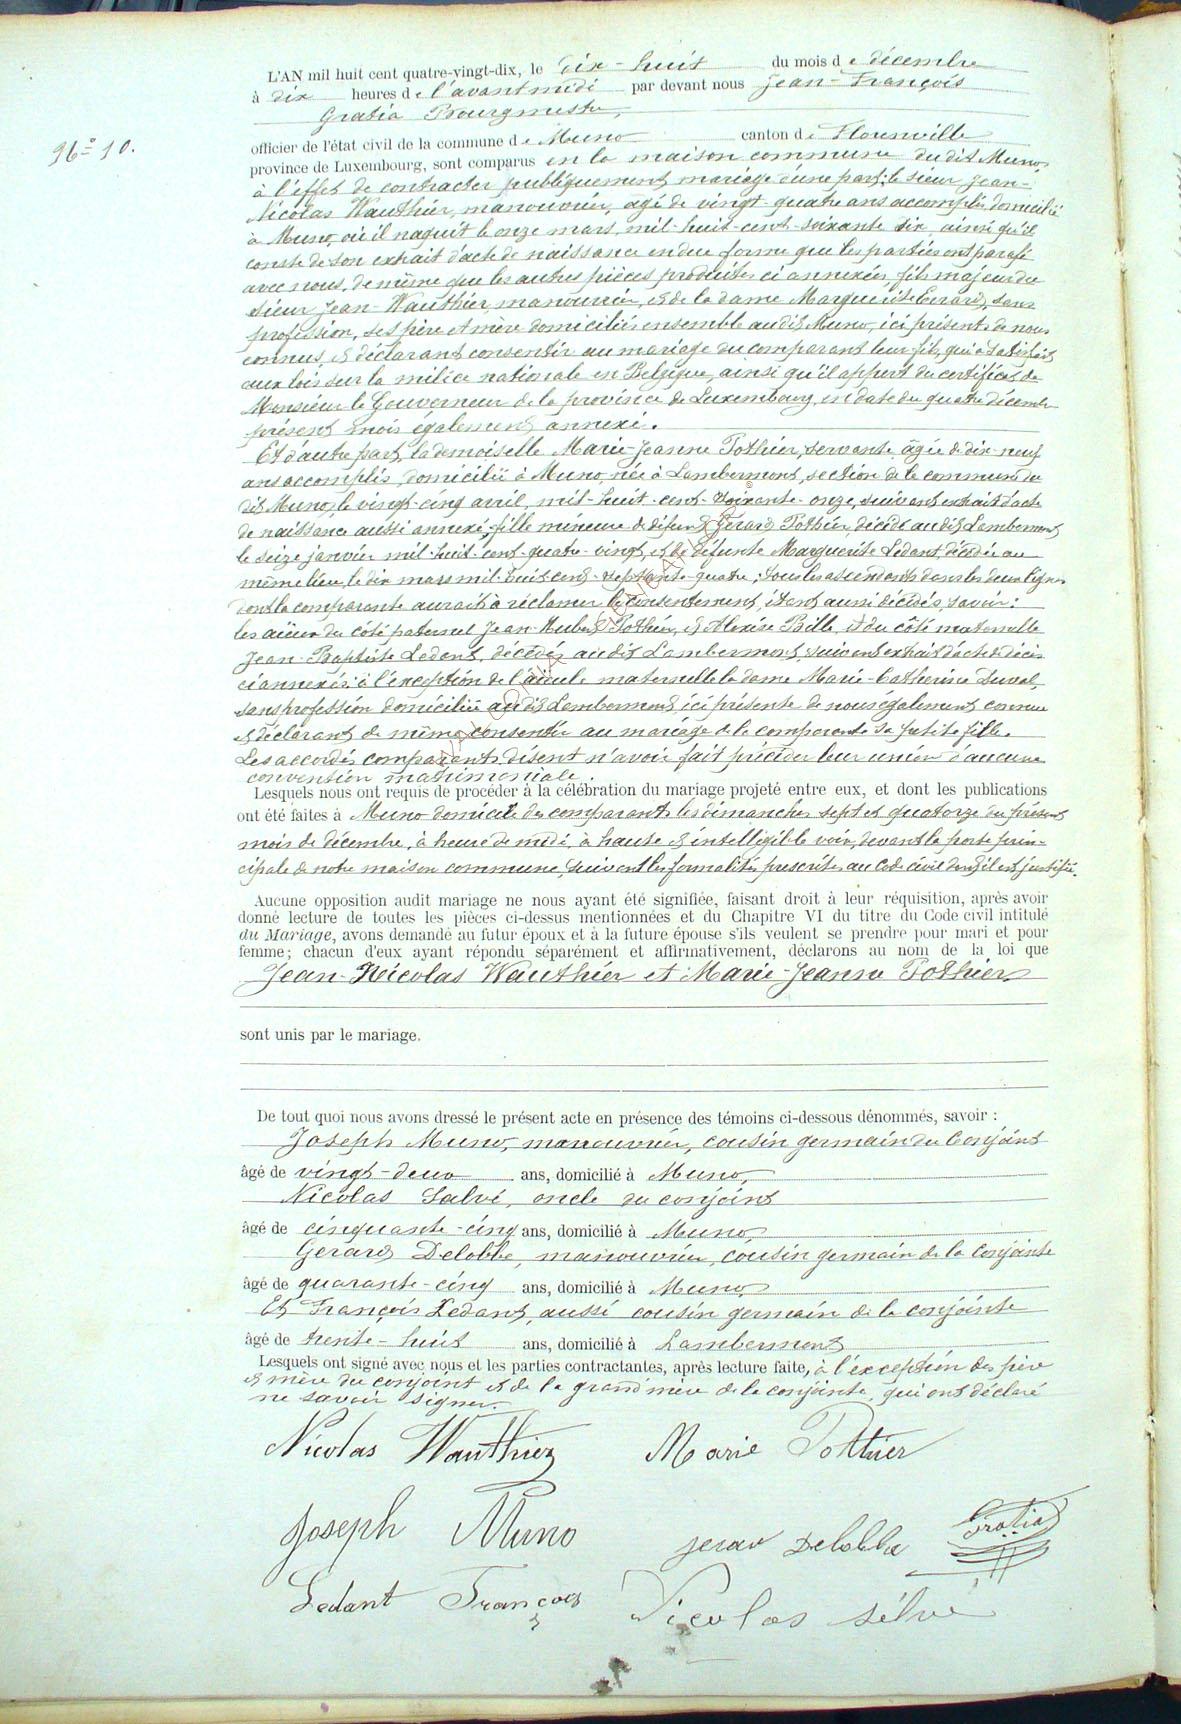 L'AN mil huit cent quatre-vingt-dix, le dix-huit du mois de décembre
à dix heures de l'avant midi par devant nous Jean-François
Gratia Bourgmestre,
N° 10.
officier de l'état civil de la commune de Muno canton de Florenville
province de Luxembourg, sont comparus en la maison commune du dit Muno,
à l'effet de contracter publiquement mariage d'une part; le sieur Jean-
Nicolas Wauthier, manouvrier, agé de vingt-quatre ans accomplis domicilié
à Muno, où il naquit le onze mars mil-huit-cent-soixante six, ainsi qu'il
conste de son extrait d'acte de naissance en due forme que les parties ont parafé
avec nous, de même que les autres pièces produites ci annexées, fils majeur du
sieur Jean-Wauthier, manouvrier, et de la dame Marguerite Evrard, sans
profession, ses père et mère domiciliés ensemble au dit Muno, ici présents de nous
connus, et déclarant consentir au mariage du comparant leur fils, qui a satisfait
aux lois sur la milice nationale en Belgique, ainsi qu'il appert du certificat de
Monsieur le Gouverneur de la province de Luxembourg, en date du quatre décembre
présent mois également annexé.
Et d'autre part, la demoiselle Marie-Jeanne Pothier, servante, âgée de dix-neuf
ans accomplis, domiciliée à Muno, née à Lambermont, section de la commune du
dit Muno, le vingt-cinq avril, mil-huit-cent-soixante-onze, suivant extrait d'acte
de naissance aussi annexé, fille mineure de défunt Gérard Pothier, décédé au dit Lambermont
le seize janvier mil-huit-cent-quatre-vingt, et de défunte Marguerite Ledant, décédée au
même lieu, le dix mars mil-huit cent-septante-quatre; tous les ascendants dans les deux lignes
dont la comparante aurait à réclamer le consentement, étant aussi décédés, savoir:
les aïeux du côté paternel Jean-Hubert Pothier, et Alexise Bille, et du côté maternelle
Jean-Baptiste Ledent, décédés au dit Lambermont, suivant extrait d'acte de décès
ci annexés; à l'exception de l'aïeule maternelle la dame Marie-Catherine Duval,
sans profession domiciliée au dit Lambermont, ici présente de nous également connue
et déclarant de même consentir au mariage de la comparante sa petite fille.
Les accordés comparants disent n'avoir fait précéder leur union d'aucune
convention matrimoniale.
Lesquels nous ont requis de procéder à la célébration du mariage projeté entre eux, et dont les publications
ont été faites à Muno domicile des comparants les dimanches sept et quatorze du présent
mois de décembre, à heure de midi, à haute et intelligible voix, devant la porte prin-
cipale de notre maison commune, suivant les formalités prescrites au Code civil dont il est justifié.
Aucune opposition audit mariage ne nous ayant été signifiée, faisant droit à leur réquisition, après avoir
donné lecture de toutes les pièces ci-dessus mentionnées et du Chapitre VI du titre du Code civil intitulé
du Mariage, avons demandé au futur époux et à la future épouse s'ils veulent se prendre pour mari et pour
femme; chacun d'eux ayant répondu séparément et affirmativement, déclarons au nom de la loi que
Jean-Nicolas Wauthier et Marie-Jeanne Pothier
sont unis par le mariage.
De tout quoi nous avons dressé le présent acte en présence des témoins ci-dessous dénommés, savoir :
Joseph Muno, manouvrier, cousin germain du Conjoint
âgé de vingt-deux ans, domicilié à Muno,
Nicolas Salvé, oncle du conjoint
âgé de cinquante-cinq ans, domicilié à Muno,
Gérard Delobbe, manouvrier, cousin germain de la Conjointe
âgé de quarante-cinq ans, domicilié à Muno,
Et François Ledant, aussi cousin germain de la conjointe
âgé de trente-huit ans, domicilié à Lambermont
Lesquels ont signé avec nous et les parties contractantes, après lecture faite, à l'exception des père
et mère du conjoint et de la grand'mère de la conjointe, qui ont déclaré
ne savoir signer.
Nicolas Wauthier Marie Pothier
Joseph Muno jerar Delobbe Gratia
Ledant François Nicolas Sélvé